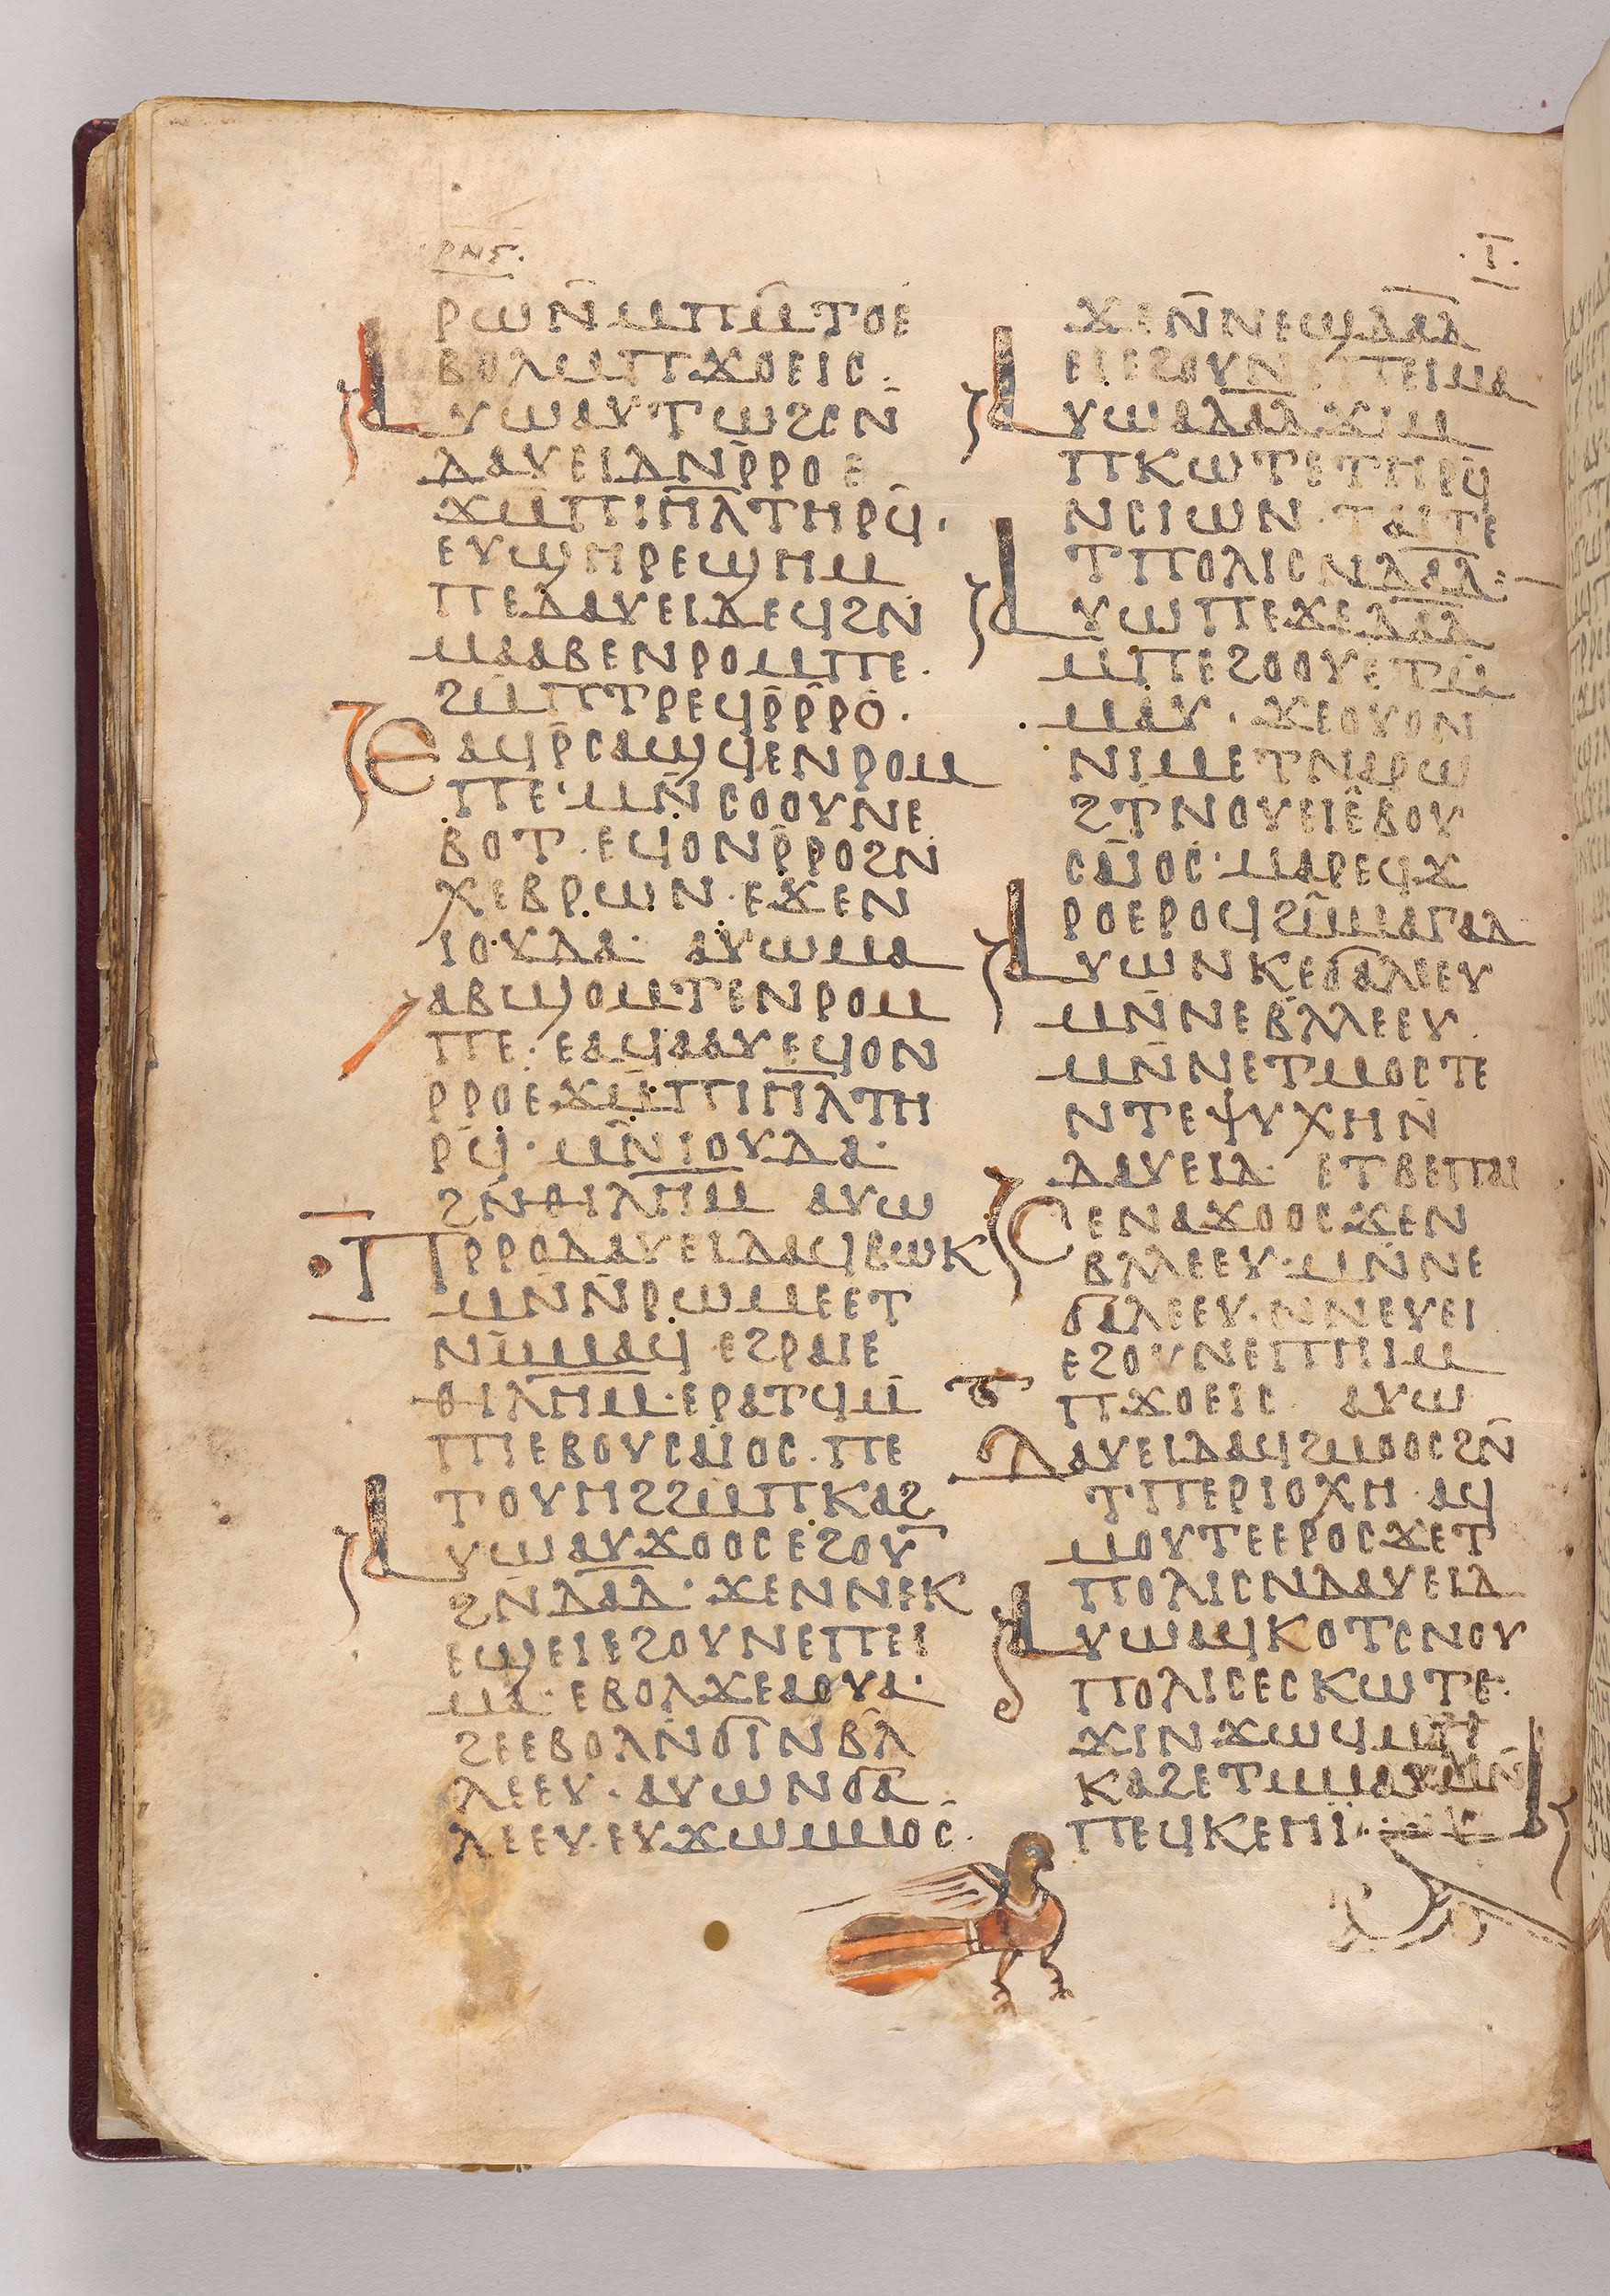 ⲣⲛⲋ.
ⲓ̅
ⲣⲱⲛ̄ⲙⲡⲙ̄ⲧⲟⲉ
ⲃⲟⲗⲙⲡϫⲟⲉⲓⲥ.
ⲁⲩⲱⲁⲩⲧⲱϩⲥⲛ̄
ⲇⲁⲩⲉⲓⲇⲛ̄ⲣⲣⲟⲉ
ϫⲙ̄ⲡⲓⲏ̅ⲗ̅ⲧⲏⲣϥ̄·
ⲉⲩϣⲏⲣⲉϣⲏⲙ
ⲡⲉⲇⲁⲩⲉⲓⲇⲉϥϩⲛ̄
ⲙⲁⲁⲃⲉⲛⲣⲟⲙⲡⲉ.
ϩⲙ̄ⲡⲧⲣⲉϥⲣ̄ⲣ̄ⲣⲟ.
ⲉⲁϥⲣ̄ⲥⲁϣϥⲉⲛⲣⲟⲙ
ⲡⲉ·ⲙⲛ̄ⲥⲟⲟⲩⲛⲉ
ⲃⲟⲧ·ⲉϥⲟⲛⲣ̄ⲣⲟϩⲛ̄
ⲭⲉⲃⲣⲱⲛ·ⲉϫⲉⲛ
ⲓⲟⲩⲇⲁ· ⲁⲩⲱⲙⲁ
ⲁⲃϣⲟⲙⲧⲉⲛⲣⲟⲙ
ⲡⲉ· ⲉⲁϥⲁⲁⲩⲉϥⲟⲛ
ⲣⲣⲟⲉϫⲙ̄ⲡⲓⲏ̅ⲗ̅ⲧⲏ
ⲣϥ̄·ⲙⲛ̄ⲓⲟⲩⲇⲁ·
ϩⲛ̄ⲑⲓⲗ̅ⲏ̅ⲙ ⲁⲩⲱ
ⲡⲣ̄ⲣⲟⲇⲁⲩⲉⲓⲇⲁϥⲃⲱⲕ
ⲙⲛ̄ⲛ̄ⲣⲱⲙⲉⲉⲧ
ⲛⲙ̄ⲙⲁϥ·ⲉϩⲣⲁⲓⲉ
ⲑⲓⲗ̅ⲏ̅ⲙ·ⲉⲣⲁⲧϥⲙ̄
ⲡⲓⲉⲃⲟⲩⲥⲁⲓⲟⲥ·ⲡⲉ
ⲧⲟⲩⲏϩϩⲙⲡⲕⲁϩ
ⲁⲩⲱⲁⲩϫⲟⲟⲥⲉϩⲟⲩ̅
ϩⲛ̄ⲇ̅ⲁ̅ⲇ· ϫⲉⲛⲛⲉⲕ
ⲉϣⲉⲓⲉϩⲟⲩⲛⲉⲡⲉⲓ
ⲙⲁ·ⲉⲃⲟⲗϫⲉⲁⲟⲩⲁ·
ϩⲉⲉⲃⲟⲗⲛ̄ϭⲓⲛⲃⲗ̄
ⲗⲉⲉⲩ·ⲁⲩⲱⲛϭⲁ
ⲗⲉⲉⲩ·ⲉⲩϫⲱⲙⲙⲟⲥ·
ϫⲉⲛ̄ⲛⲉϣⲇ̅ⲁ̅ⲇ
ⲉⲓⲉϩⲟⲩⲛⲉⲡⲉⲓⲙⲁ
ⲁⲩⲱⲁⲇ̅ⲁ̅ⲇϫⲓⲙ
ⲡⲕⲱⲧⲉⲧⲏⲣϥ̄
ⲛⲥⲓⲱⲛ·ⲧⲁⲓⲧⲉ
ⲧⲡⲟⲗⲓⲥⲛⲇ̅ⲁ̅ⲇ:
ⲁⲩⲱⲡⲉϫⲉⲇ̅ⲁ̅ⲇ
ⲙⲡⲉϩⲟⲟⲩⲉⲧⲙ̄
ⲙⲁⲩ·ϫⲉⲟⲩⲟⲛ
ⲛⲓⲙⲉⲧⲛⲁⲣⲱ
ϩⲧⲛⲟⲩⲉⲓⲉ̂ⲃⲟⲩ
ⲥⲁⲓⲟⲥ·ⲙⲁⲣⲉϥϫ
ⲣⲟⲉⲣⲟϥϩⲙ̄ⲙⲁⲅⲁⲇ
ⲁⲩⲱⲛⲕⲉϭⲁⲗⲉⲉⲩ
ⲙⲛ̄ⲛⲉⲃⲗ̄ⲗⲉⲉⲩ.
ⲙⲛ̄ⲛⲉⲧⲙⲟⲥⲧⲉ
ⲛⲧⲉⲯⲩⲭⲏⲛ̄
ⲇⲁⲩⲉⲓⲇ· ⲉⲧⲃⲉⲡⲁⲓ
ⲥⲉⲛⲁϫⲟⲟⲥϫⲉⲛ
ⲃⲗⲗⲉⲉⲩ·ⲙⲛ̄ⲛⲉ
ϭⲁⲗⲉⲉⲩ·ⲛⲛⲉⲩⲉⲓ
ⲉϩⲟⲩⲛⲉⲡⲏⲓⲙ
ⲡϫⲟⲉⲓⲥ ⲁⲩⲱ
ⲇⲁⲩⲉⲓⲇⲁϥϩⲙⲟⲟⲥϩⲛ̄
ⲧⲡⲉⲣⲓⲟⲭⲏ·ⲁϥ
ⲙⲟⲩⲧⲉⲉⲣⲟⲥϫⲉⲧ
ⲡⲟⲗⲓⲥⲛⲇⲁⲩⲉⲓⲇ
ⲁⲩⲱⲁϥⲕⲟⲧⲥⲛⲟⲩ
ⲡⲟⲗⲓⲥⲉⲥⲕⲱⲧⲉ·
ϫⲓⲛϫⲱϥⲙⲡ
ⲕⲁϩⲉⲧⲙⲙⲁⲩⲙⲛ̄
ⲡⲉϥⲕⲉⲏⲓ·